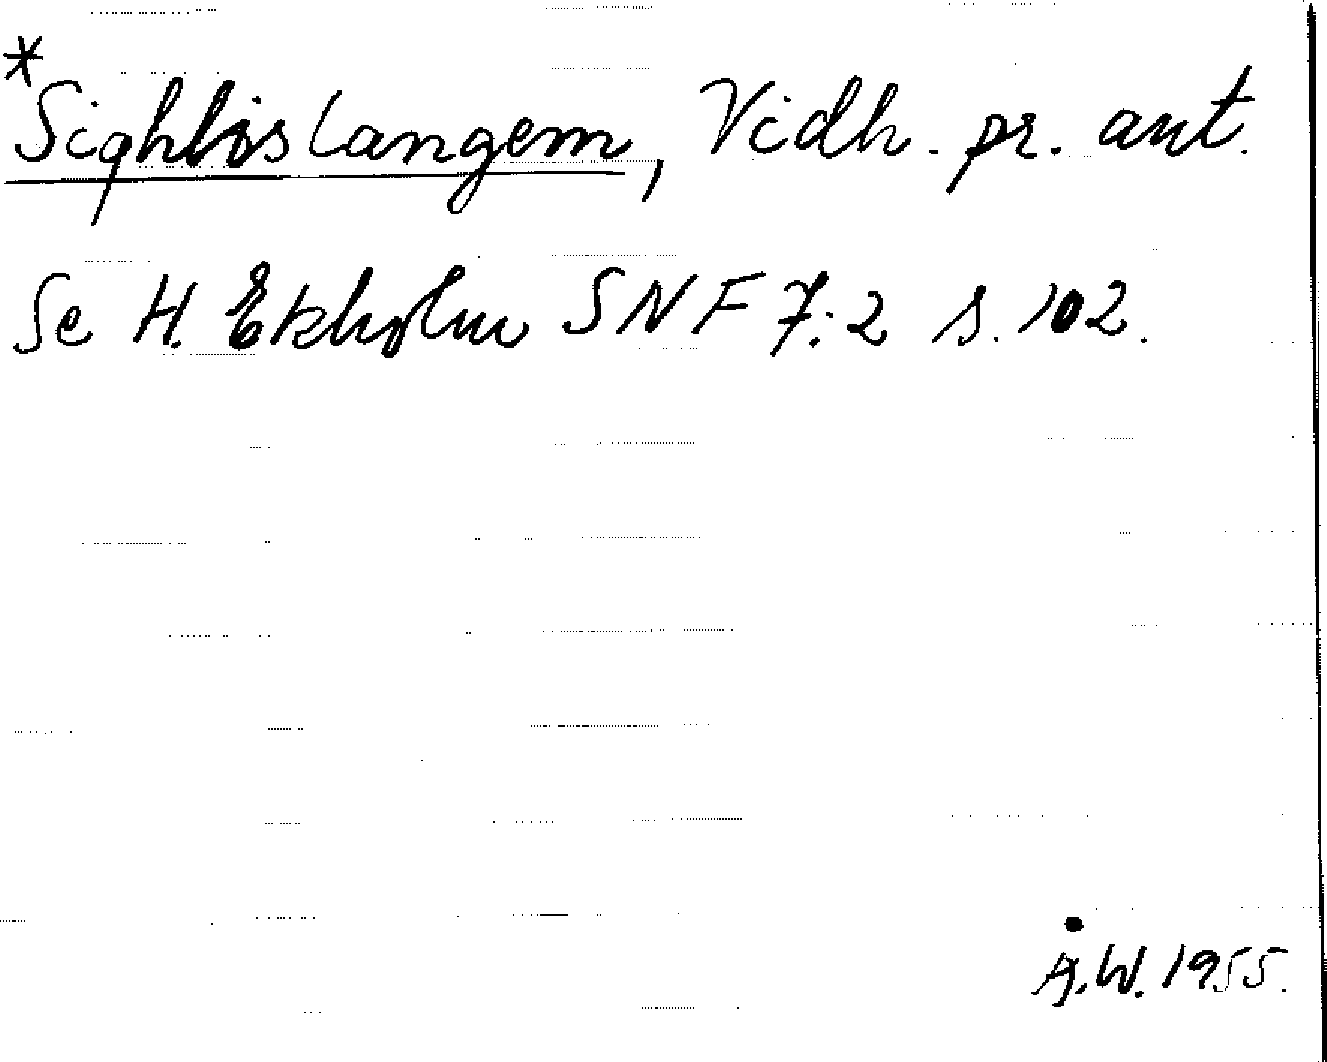 *Sighbislangem, Vidh. pr. ant.
Se H. Ekholm SNF 7:2 s. 102.
Å.W. 1955.